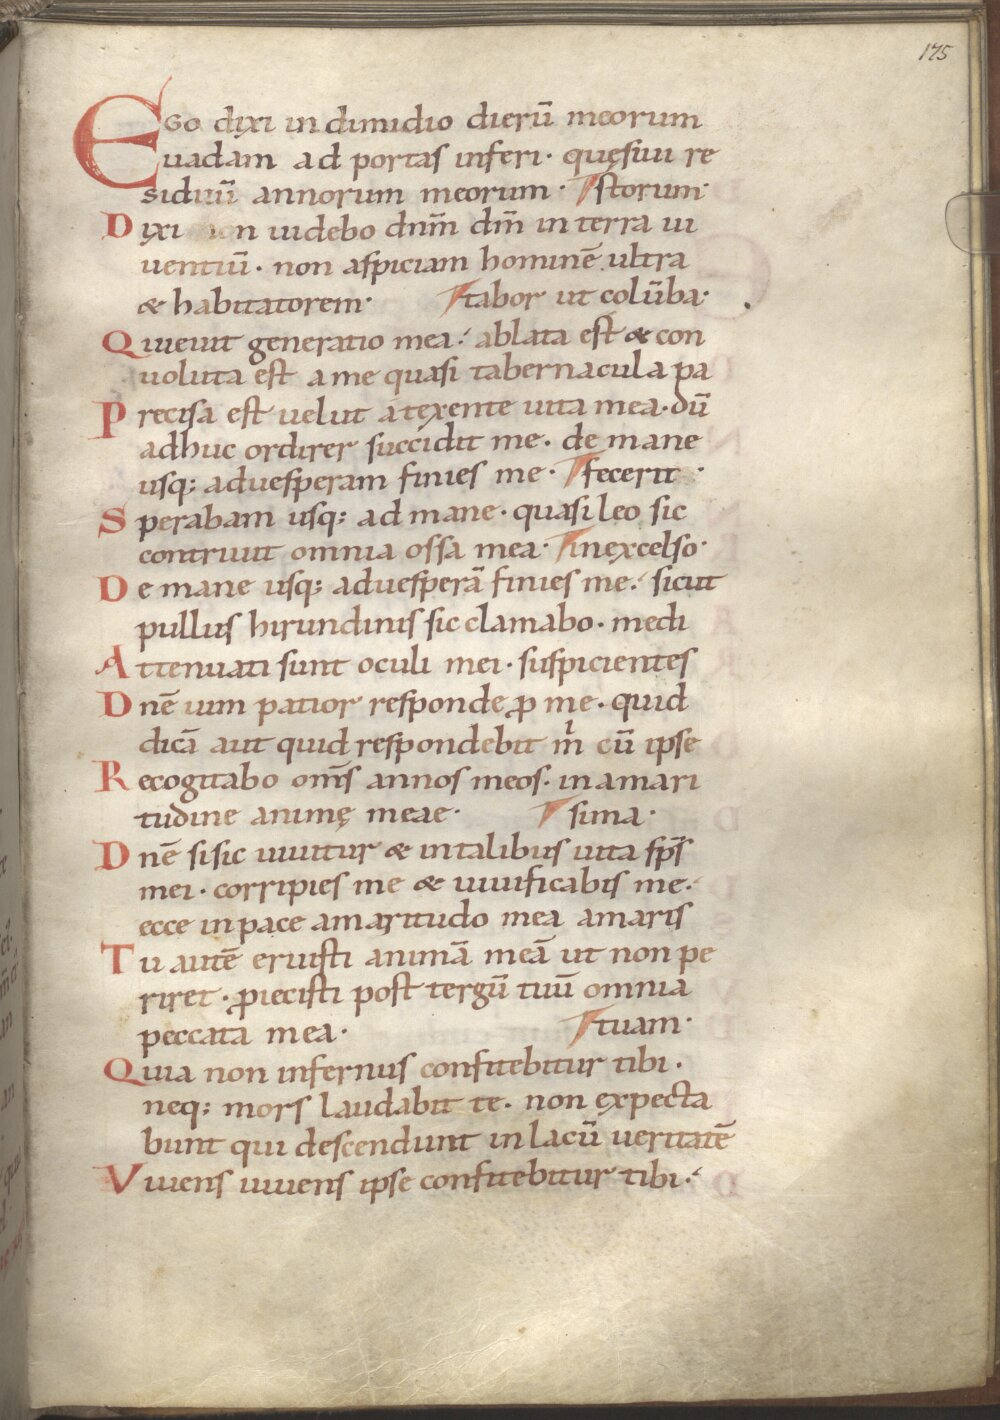 175
Ego dixi in dimidio dierū meorum
uadam ad portas inferi · quęsiui re
siduū annorum meorum · storum·
Dixi non uidebo dnm̄ dm̄ in terra ui
uentiū · non aspiciam hominē ultra
& habitatorem· tabor ut colūba·
Quieuit generatio mea· ablata est & con
uoluta est a me quasi tabernacula pa
Precisa est uelut a texente uita mea· dū
adhuc ordirer succidit me· de mane
usq; aduesperam finies me· fecerit ·
Sperabam usq; ad mane· quasi leo sic
contriuit omnia ossa mea· inexcelso·
De mane usq; aduesperā finies me· sicut
pullus hirundinis sic clamabo· medi
Attenuati sunt oculi mei· suspicientes
Dnē uim patior responde ꝓ me· quid
dicā aut quid respondebit m̄ cū ipse
Recogitabo om̄s annos meos· in amari
tudine animę meae· sima·
Dnē si sic uiuitur & in talibus uita sps̄
mei· corripies me & uiuificabis me·
ecce in pace amaritudo mea amaris
Tu autē eruisti animā meā ut non pe
riret· ꝓiecisti post tergū tuū omnia
peccata mea· tuam·
Quia non infernus confitebitur tibi·
neq; mors laudabit te· non expecta
bunt qui descendunt in lacū ueritatē
Viuens uiuens ipse confitebitur tibi·